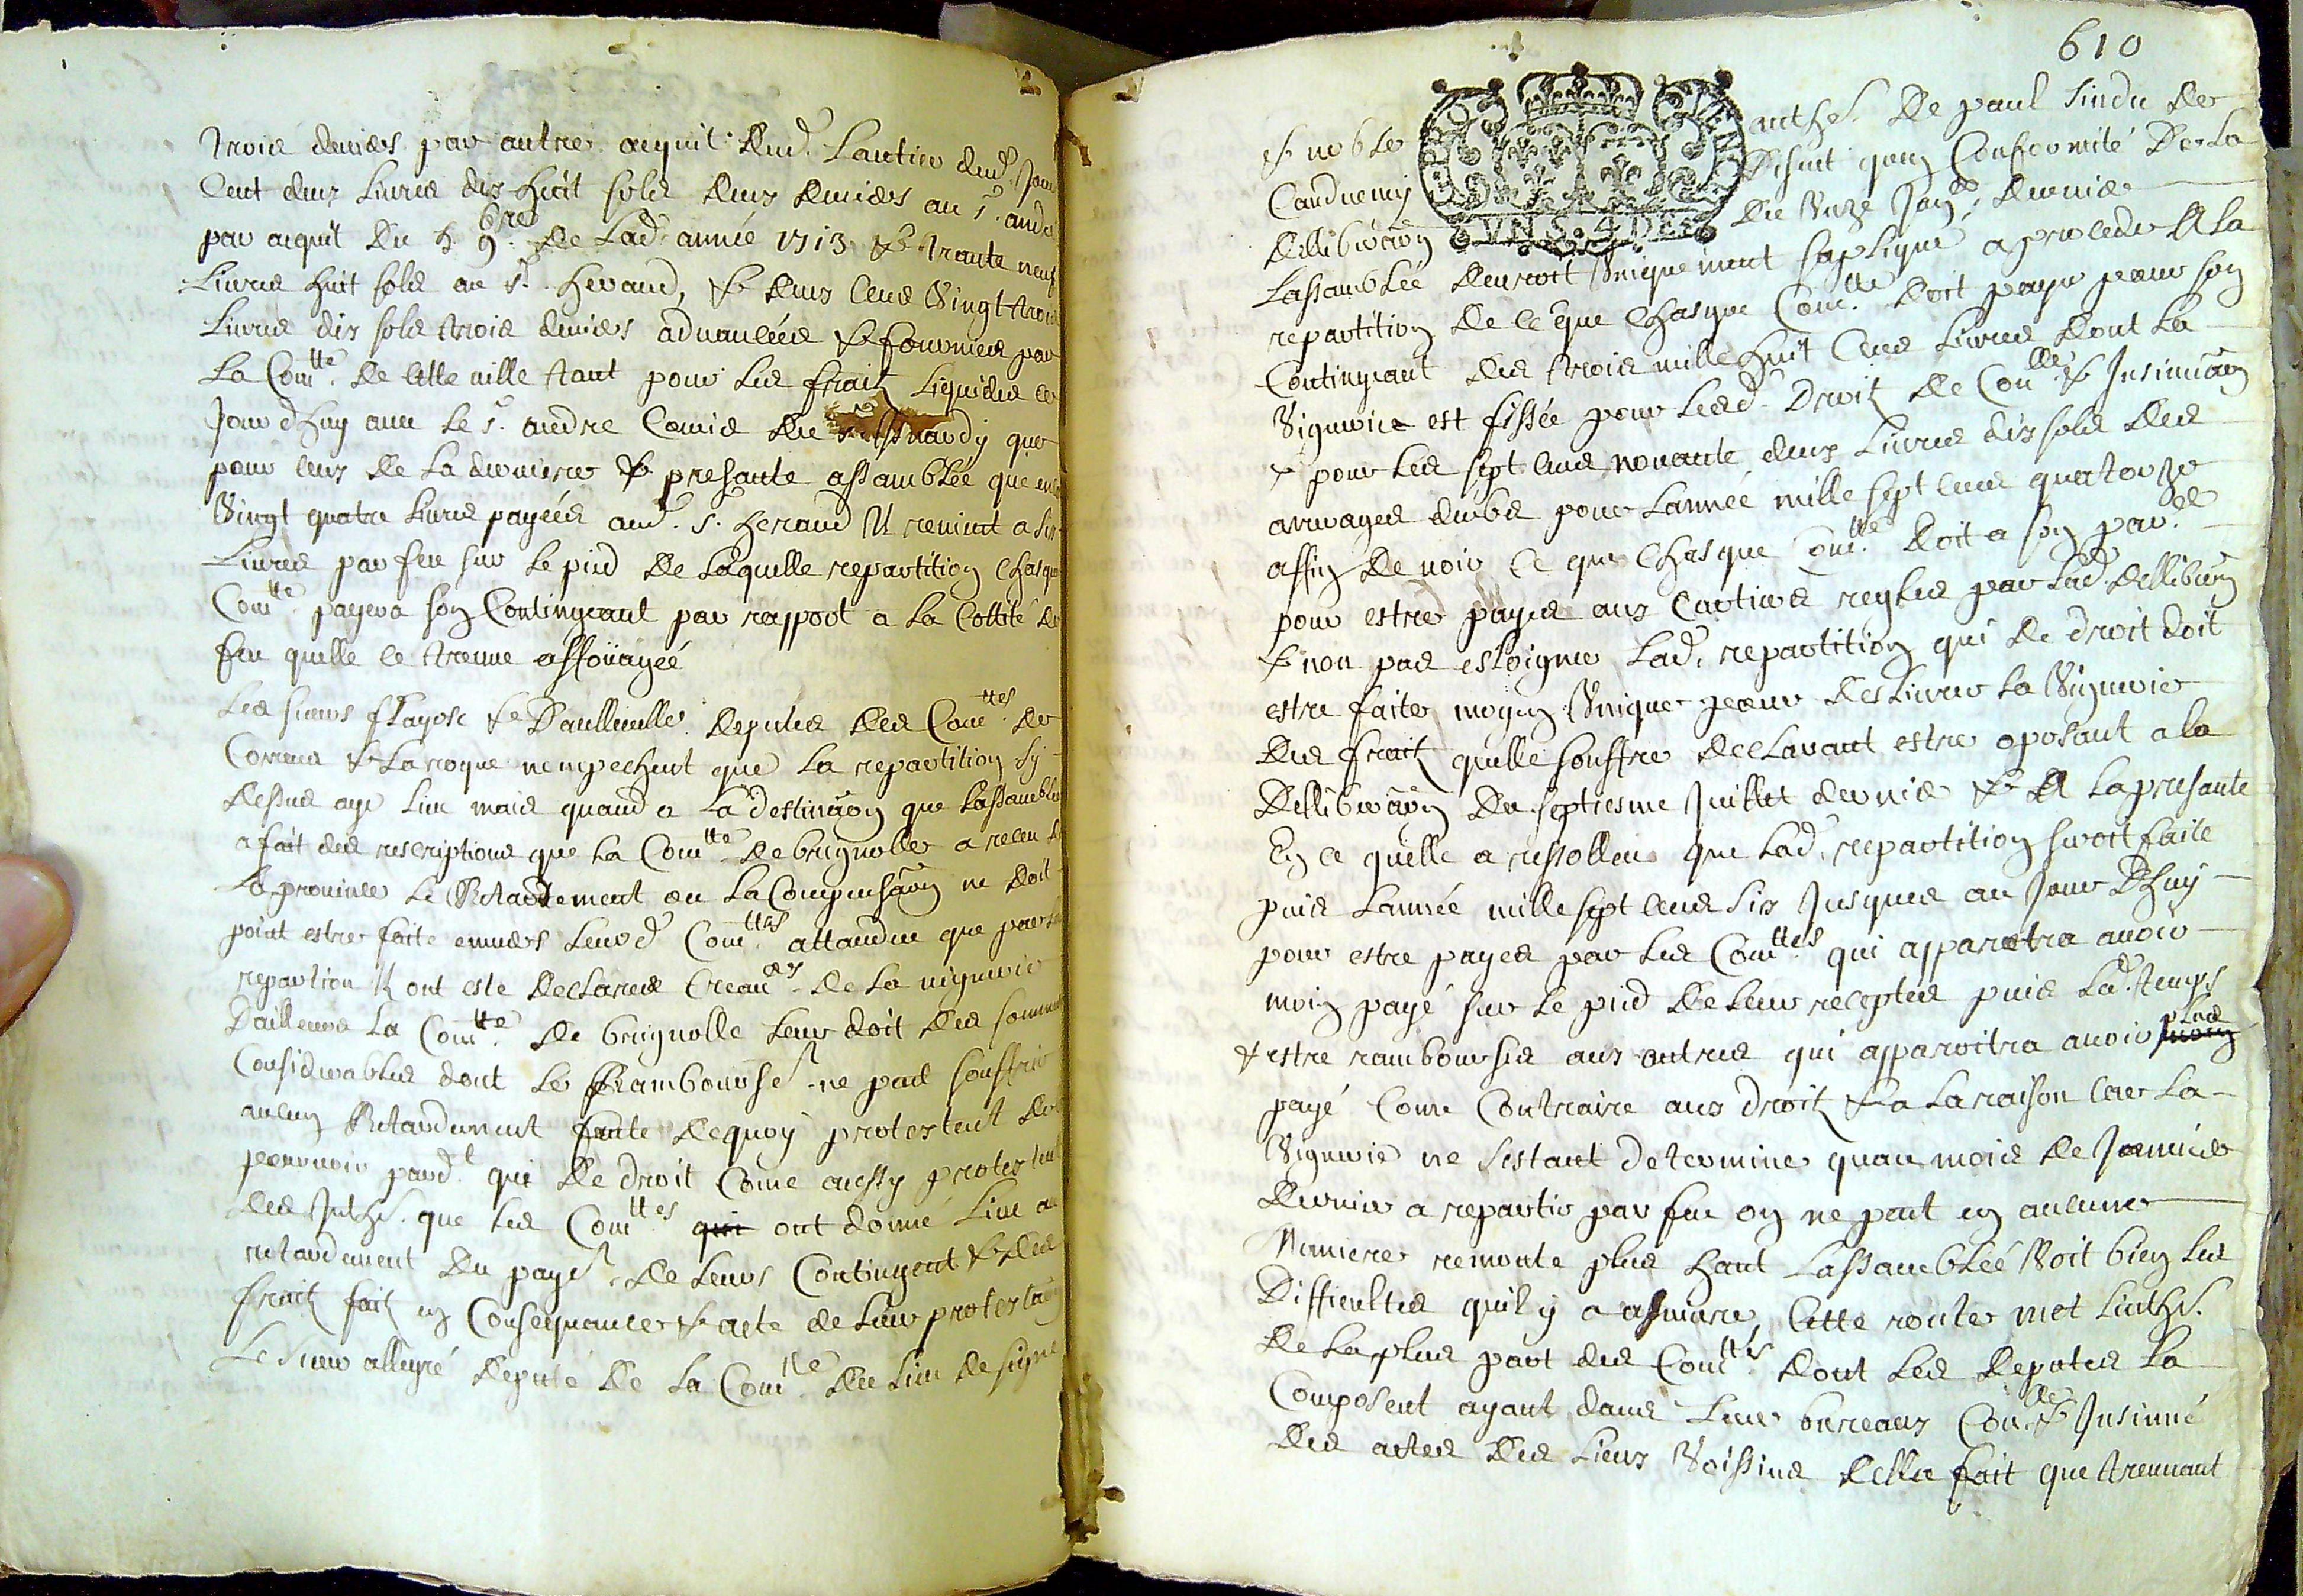 trois deniers par autre aquit dud. Lautier dud. Jour
cent deux Livres dix huit sols deux deniers au s.r andré
par aquit du 4 9bre de lad. année 1713 & trante neuf
Livres huit sols au s.r heraud, & deux cens Vingt trois
Livres dix sols trois deniers advancées & fournies par
La Com.tte de Cette ville tant pour les fraix liquides ce
Jourdhuy avec le s.r andre Comis du que
pour ceux de la derniere & presante assamblée que
Vingt quatre livres payées aud. s.r heraud Il revient a six
Livres par feu sur le pied de laquelle repartition Chasque
Com.tte payera son Contingeant par raport a la Cottité de
feu quelle ce treuve affoüagée
Les sieurs flayosc & Daulleville deputés des Com.ttes de
Correns & la roque nempechent que la repartition sy
dessus aye lieu mais quand a la destina̅on que Lassamblée
a fait des rescriptions que la Com.tte de brignolle a receu de
La province Le Retardement ou la Compensa̅on ne doit
point estre faite envers leurd. Com.ttes attandu que par la
repartion Il ont esté declarés Crean.ers de la viguerie
Dailleurs la Com.tte de brignolle leur doit des sommes
Considerables dont le Rambourse.t ne peut souffrir
aucun Retardement faute dequoy protestent de
pourvoir pard.t qui de droit Come aussy protestent
des Inth.s que les Com.ttes qui ont donné lieu au
retardement du paye.t de leurs Contingent & des
fraix faitz en Consequance & acte de leur protesta̅on
Le sieur allegré deputé de la Com.tte du lieu de signe
610
& noble anthe. De paul sindic de
Caudueny Disent quen Conformité De la
dellibera̅on du Unze Jan.er dernier
GPROVENCE
UN S. 4 DE.
Lassamblée devroit Uniquement sapliquer a proceder A la
repartition de ce que Chasque Com.tte doit payer pour son
Contingeant des trois mille huit Cens livres dont la
Viguerie est fissée pour lesd. Droitz de Con.lle & Insinua̅on
& pour les sept cens nonante deux livres dix sols des
arrerages deubs pour Lannée mille sept cens quatorze
affin de voir Ce que Chasque Com.tte doit a son par.er
pour estre payés aux Cartiers reglés par lad. dellibera̅on
& non pas esloigner lad. repartition qui de droit doit
estre faite moyen Unique pour deslivrer la Viguerie
des fraix quelle souffre declarant estre oposant a la
Dellibera̅on du septiesme Juillet dernier & A la presante
En ce quelle a ressollu que lad. repartition seroit faite
puis Lannée mille sept cens six Jusques au Jour Dhuy
pour estre payés par les Com.ttes qui apparetra avoir
moin payé sur le pied de leur receptes puis led. temps
& estre rambourses aux autres qui apparoitra avoir moin plus
payé Come Contraire aux droitz & a la raison Car la
Viguerie ne sestant determiner quau mois de Janvier
dernier a repartir par feu on ne peut en aucune
Maniere remonte plus haut Lassamblée Voit bien les
Difficultés quil y a a suivre, Cette route met linth.
De la plus part des Com.ttes dont les deputés la
Composent ayant dans leur bureaux Con.llé & Insinué
des actes des lieux Voissins della fait que treuvant